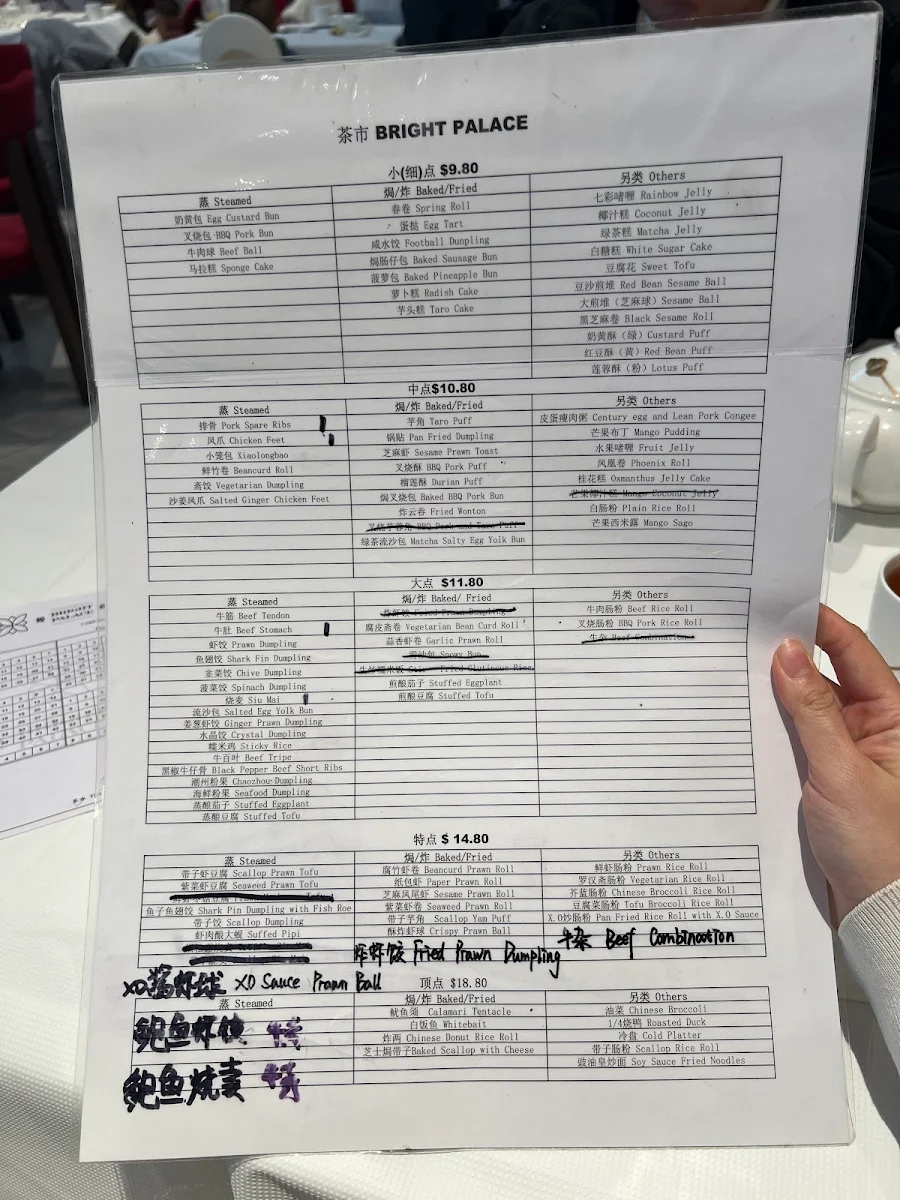 茶市 BRIGHT PALACE
小(细)点 $9.80
蒸 Steamed
奶黄包 Egg Custard Bun
叉烧包 BBQ Pork Bun
牛肉球 Beef Ball
马拉糕 Sponge Cake
焗/炸 Baked/Fried
春卷 Spring Roll
蛋挞 Egg Tart
咸水饺 Football Dunpling
焗肠仔包 Baked Sausage Bun
菠萝包 Baked Pineapple Bun
萝卜糕 Radish Cake
芋头糕 Taro Cake
另类 Others
七彩啫喱 Rainbow Jelly
椰汁糕 Coconut Jelly
绿茶糕 Matcha Jelly
白糖糕 White Sugar Cake
豆腐花 Sweet Tofu
豆沙煎堆 Red Bean Sesame Ball
大煎堆（芝麻球）Sesame Ball
黑芝麻卷 Black Sesame Roll
奶黄酥（绿）Custard Puff
红豆酥（黄）Red Bean Puff
莲蓉酥（粉）Lotus Puff
中点$10.80
蒸 Steamed
排骨 Pork Spare Ribs
凤爪 Chicken Feet
小笼包 Xiaolongbao
鲜竹卷 Beancurd Roll
斋饺 Vegetarian Dumpling
沙姜凤爪 Salted Ginger Chicken Feet
焗/炸 Baked/Fried
芋角 Taro Puff
锅贴 Pan Fried Dumpling
芝麻虾 Sesame Prawn Toast
叉烧酥 BBQ Pork Puff
榴莲酥 Durian Puff
焗叉烧包 Baked BBQ Pork Bun
炸云吞 Fried Wonton
叉烧芋蓉角 BBQ Pork and Taro Puff
绿茶流沙包 Matcha Salty Egg Yolk Bun
另类 Others
皮蛋瘦肉粥 Century egg and Lean Pork Congee
芒果布丁 Mango Pudding
水果啫喱 Fruit Jelly
凤凰卷 Phoenix Roll
桂花糕 Osmanthus Jelly Cake
芒果椰汁糕 Mango Coconut Jelly
白肠粉 Plain Rice Roll
芒果西米露 Mango Sago
大点 $11.80
蒸 Steamed
牛筋 Beef Tendon
牛肚 Beef Stomach
虾饺 Prawn Dumpling
鱼翅饺 Shark Fin Dumpling
韭菜饺 Chive Dumpling
菠菜饺 Spinach Dumpling
烧麦 Siu Mai
流沙包 Salted Egg Yolk Bun
姜葱虾饺 Ginger Prawn Dumpling
水晶饺 Crystal Dumpling
糯米鸡 Sticky Rice
牛百叶 Beef Tripe
黑椒牛仔骨 Black Pepper Beef Short Ribs
潮州粉果 Chaozhou Dumpling
海鲜粉果 Seafood Dumpling
蒸酿茄子 Stuffed Eggplant
蒸酿豆腐 Stuffed Tofu
焗/炸 Baked/ Fried
炸虾饺 Fried Prawn Dumpling
腐皮斋卷 Vegetarian Bean Curd Roll
蒜香虾卷 Garlic Prawn Roll
雪沙包 Snowy Bun
生炒糯米饭 Fried Glutinous Rice
煎酿茄子 Stuffed Eggplant
煎酿豆腐 Stuffed Tofu
另类 Others
牛肉肠粉 Beef Rice Roll
叉烧肠粉 BBQ Pork Rice Roll
牛杂 Beef Combination
特点 $ 14.80
蒸 Steamed
带子虾豆腐 Scallop Prawn Tofu
紫菜虾豆腐 Seaweed Prawn Tofu
Tofu
鱼子鱼翅饺 Shark Pin Dumpling with Fish Roe
带子饺 Scallop Dumpling
虾肉酿大蚬 Suffed Pipi
焗/炸 Baked/Fried
腐竹虾卷 Beancurd Prawn Roll
纸包虾 Paper Prawn Roll
芝麻凤尾虾 Sesame Prawn Roll
紫菜虾卷 Seaweed Prawn Roll
带子芋角 Scallop Yam Puff
酥炸虾球 Crispy Prawn Ball
炸虾饺 Fried Prawn Dumpling
另类 Others
鲜虾肠粉 Prawn Rice Roll
罗汉斋肠粉 Vegetarian Rice Roll
芥蓝肠粉 Chinese Broccoli Rice Roll
豆腐菜肠粉 Tofu Broccoli Rice Roll
X.O炒肠粉 Pan Fried Rice Roll with X.O Sauce
牛杂 Beef Combination
XO酱虾球 XO Sauce Prawn Ball
顶点 $18.80
蒸 Steamed
鲍鱼虾饺 特
鲍鱼烧卖 特
焗/炸 Baked/Fried
鱿鱼须 Calamari Tentacle
白饭鱼 Whitebait
炸两 Chinese Donut Rice Roll
芝士焗带子Baked Scallop with Cheese
另类 Others
油菜 Chinese Broccoli
1/4烧鸭 Roasted Duck
冷盘 Cold Platter
带子肠粉 Scallop Rice Roll
豉油皇炒面 Soy Sauce Fried Noodles